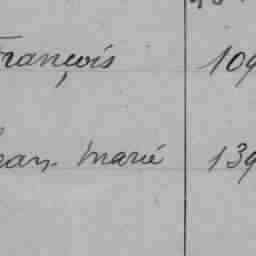 François 109
Jean Marie 139